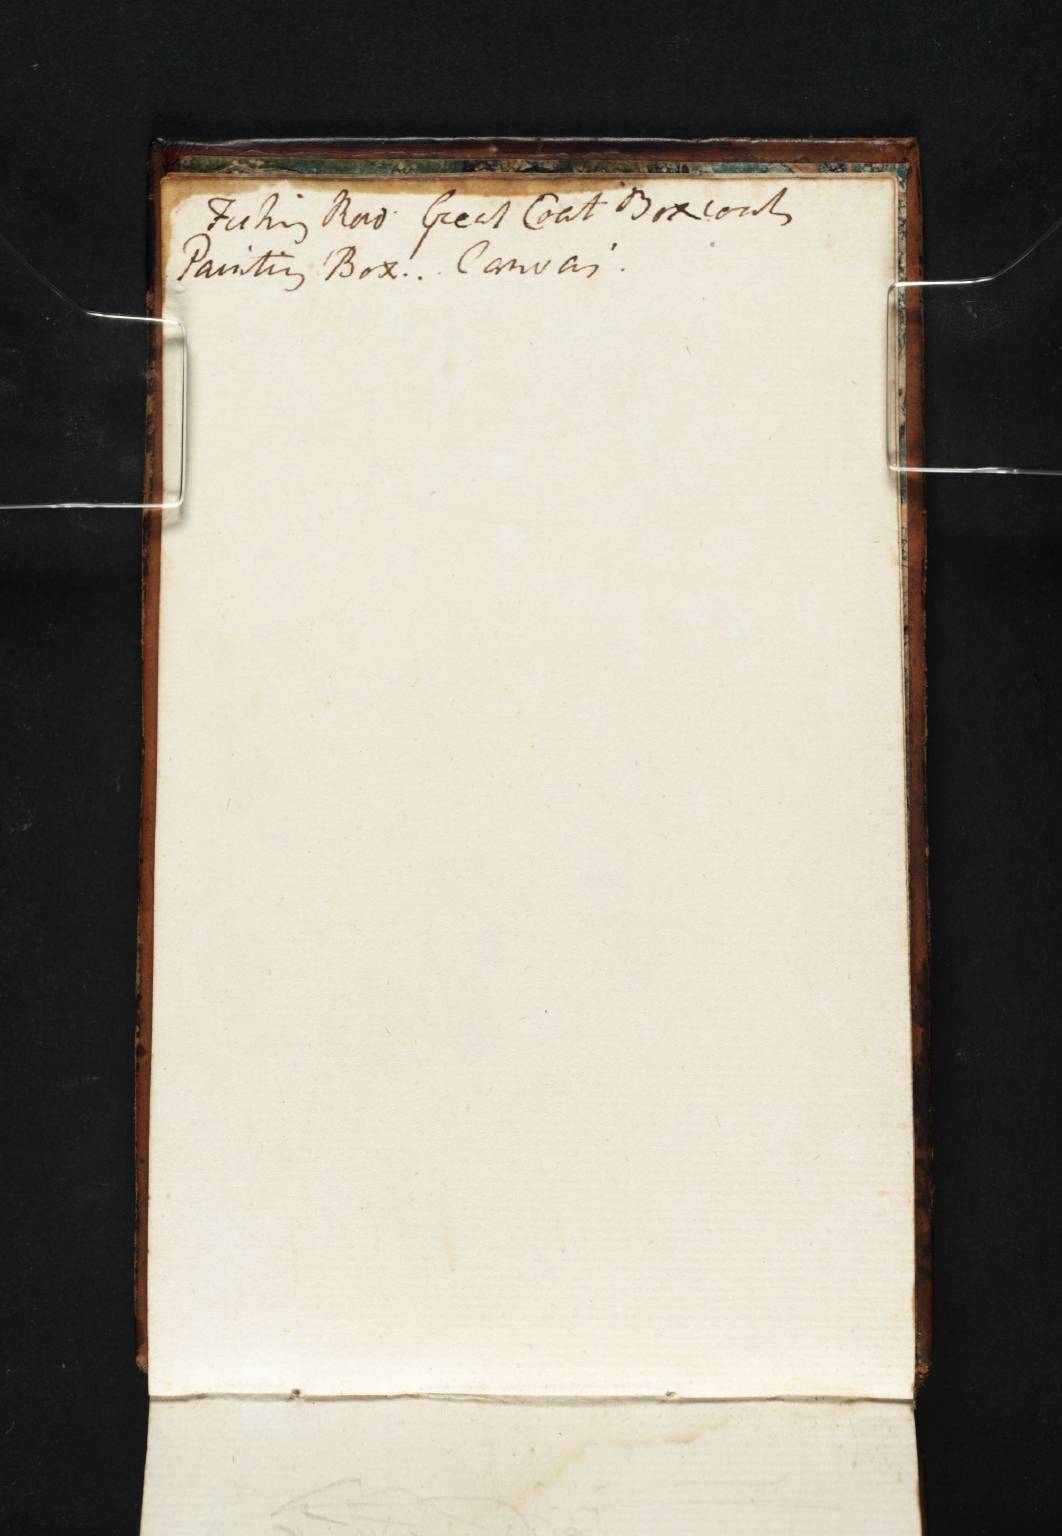 Fishing Rod Great Coat Box coats
Painting Box... Canvas.